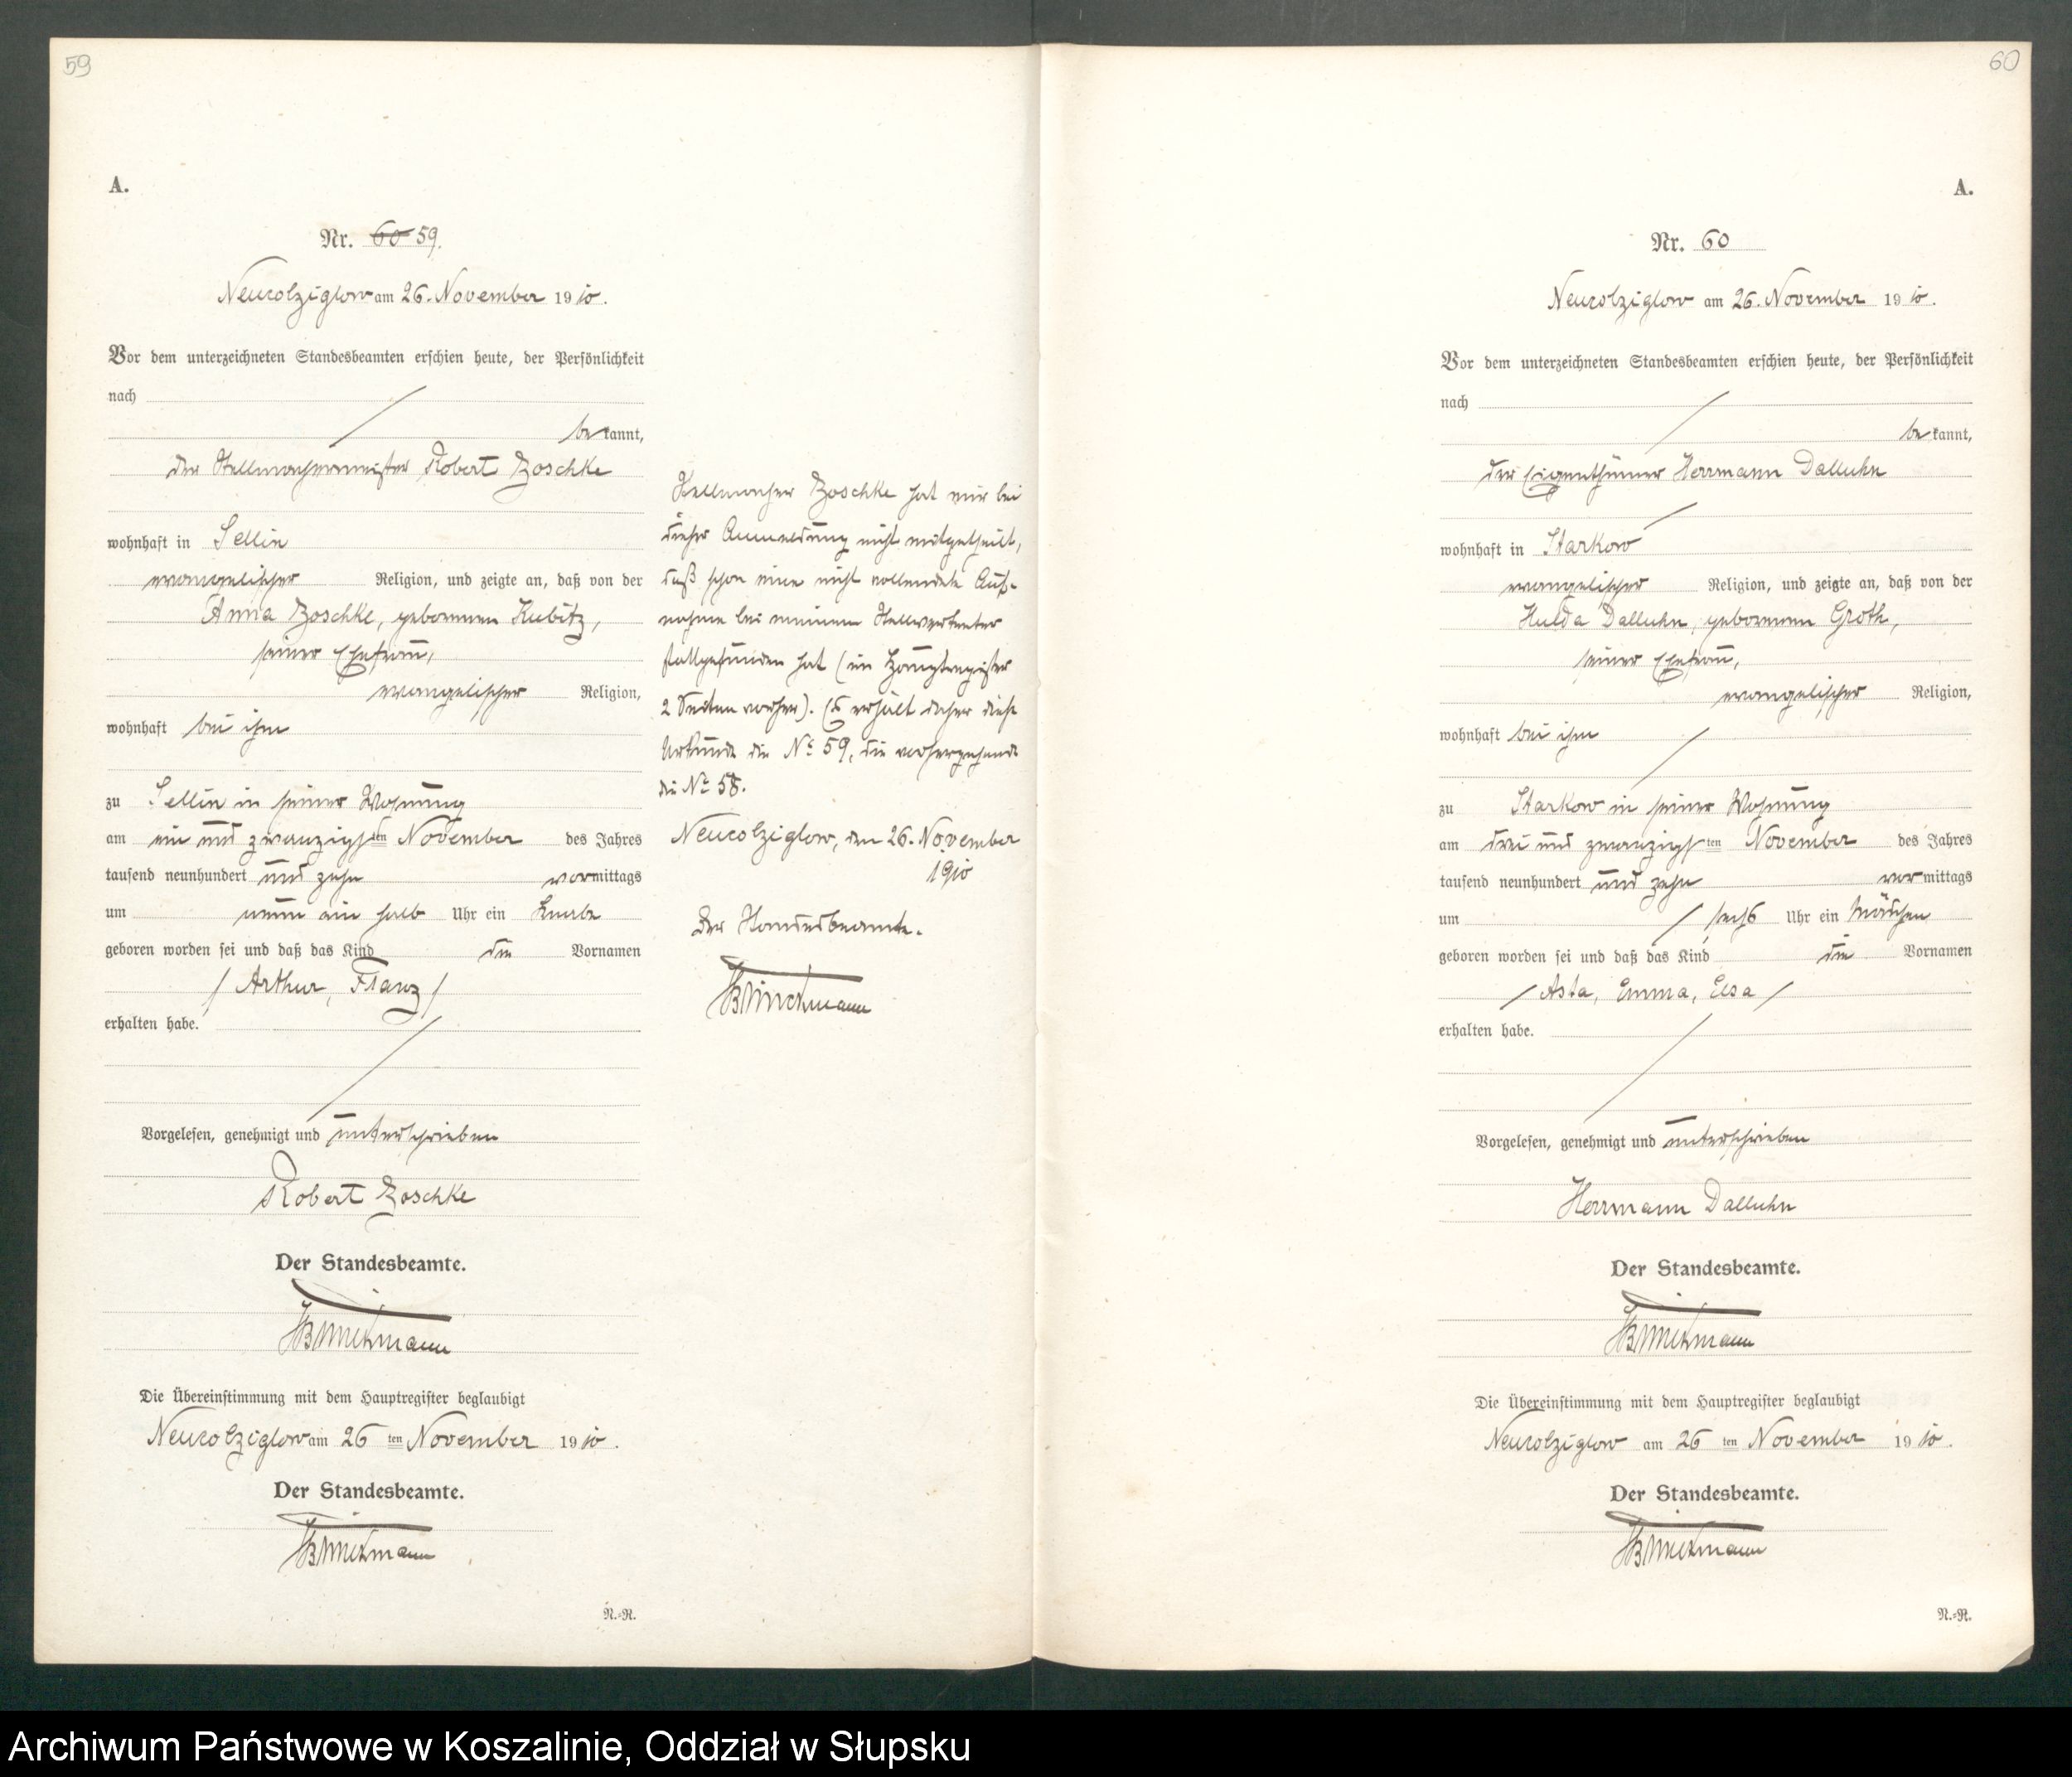 59
A.
Nr. 60 59.
Neukolziglow am 26. November 1910.
Vor dem unterzeichneten Standesbeamten erschien heute, der Persönlichkeit
nach
bekannt,
der Stellmachermeister Robert Zoschke
wohnhaft in Sellin
evangelischer Religion, und zeigte an, daß von der
Anna Zoschke, geborenen Kubitz,
seiner Ehefrau,
evangelischer Religion,
wohnhaft bei ihm
zu Sellin in seiner Wohnung
am ein und zwanzigsten November des Jahres
tausend neunhundert und zehn vormittags
um neun ein halb Uhr ein Knabe
geboren worden sei und daß das Kind die Vornamen
/ Arthur, Franz /
erhalten habe.
Vorgelesen, genehmigt und unterschrieben
Robert Zoschke
Der Standesbeamte.
Die Übereinstimmung mit dem Hauptregister beglaubigt
Neukolziglow am 26 ten November 1910.
Der Standesbeamte.
N.=R.
Stellmacher Zoschke hat mir bei
dieser Anmeldung nicht mitgetheilt,
daß schon eine nicht vollendete Auf-
nahme bei meinem Stellvertreter
stattgefunden hat (im Hauptregister
2 Seiten vorher). Es erhält daher diese
Urkunde die No 59, die vorhergehende
die No 58.
Neukolziglow, den 26. November
1910
Der Standesbeamte.
60
A.
Nr. 60
Neukolziglow am 26. November 1910.
Vor dem unterzeichneten Standesbeamten erschien heute, der Persönlichkeit
nach
bekannt,
der Eigenthümer Herrmann Dalluhn
wohnhaft in Starkow
evangelischer Religion, und zeigte an, daß von der
Hulda Dalluhn, geborenen Groth,
seiner Ehefrau,
evangelischer Religion,
wohnhaft bei ihm
zu Starkow in seiner Wohnung
am drei und zwanzigsten November des Jahres
tausend neunhundert und zehn vormittags
um / sechs Uhr ein Mädchen
geboren worden sei und daß das Kind die Vornamen
/ Asta, Emma, Elsa /
erhalten habe.
Vorgelesen, genehmigt und unterschrieben
Herrmann Dalluhn
Der Standesbeamte.
Die Übereinstimmung mit dem Hauptregister beglaubigt
Neukolziglow am 26 ten November 1910.
Der Standesbeamte.
N.=R.
Archiwum Państwowe w Koszalinie, Oddział w Słupsku